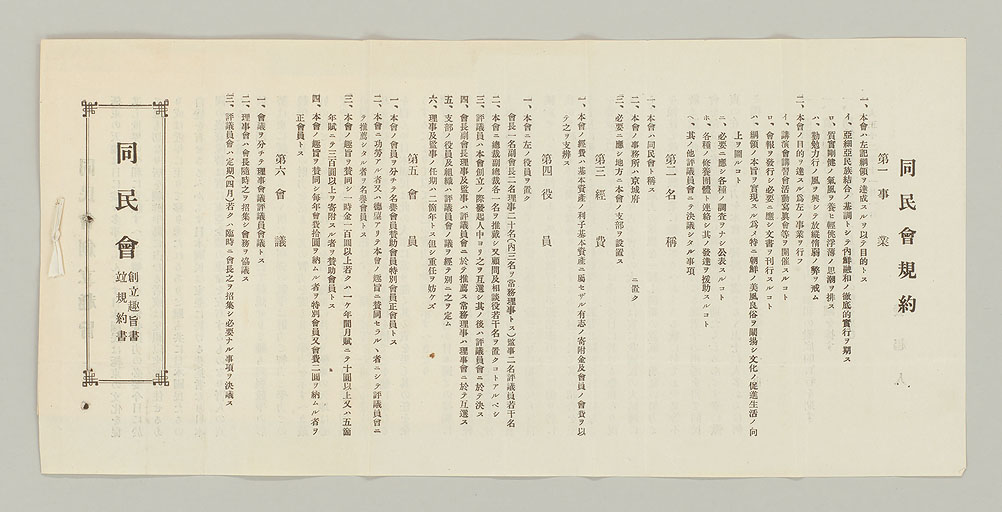 同民會規約
第一 事業
一、本會ハ左記綱領ヲ達成スルヲ以テ目的トス
イ、亞細亞民族結合ノ基調トシテ內鮮融和ノ徹底的實行ヲ期ス
ロ、質實剛健ノ氣風ヲ養ヒ輕佻浮薄ノ思潮ヲ排ス
ハ、勤勉力行ノ風ヲ興シテ放縱惰弱ノ弊ヲ戒ム
二、本會ノ目的ヲ達スル爲左ノ事業ヲ行フ
イ、講演會講習會活動寫眞會等ヲ開催スルコト
ロ、會報ヲ發行シ必要ニ應シ文書ヲ刊行スルコト
ハ、綱領ノ本旨ヲ實現スル爲メ特ニ朝鮮ノ美風良俗ヲ闡揚シ文化ノ促進生活ノ向
上ヲ圖ルコト
ニ、必要ニ應シ各種ノ調査ヲナシ公表スルコト
ホ、各種ノ修養團體ト連絡シ其ノ發達ヲ援助スルコト
ヘ、其ノ他評議員會ニテ決議シタル事項
第二 名稱
一、本會ハ同民會ト稱ス
二、本會ノ事務所ハ京城府 ニ置ク
三、必要ニ應シ地方ニ本會ノ支部ヲ設置ス
第三 經費
一、本會ノ經費ハ基本資產ノ利子基本資產ニ屬セザル有志ノ寄附金及會員ノ會費ヲ以
テ之ヲ支辨ス
第四 役員
一、本會ニ左ノ役員ヲ置ク
會長一名副會長二名理事二十名(內三名ヲ常務理事トス)監事二名評議員若干名
二、本會ニ總裁副總裁各一名ヲ推戴シ又顧問及相談役若干名ヲ置クコトアルベシ
三、評議員ハ本會創立ノ際發起人中ヨリ之ヲ互選シ其ノ後ハ評議員會ニ於テ決ス
四、會長副會長理事及監事ハ評議員會ニ於テ推薦ス常務理事ハ理事會ニ於テ互選ス
五、支部ノ役員及組織ハ評議員會ノ議ヲ經テ別ニ之ヲ定ム
六、理事及監事ノ任期ハ二箇年トス但シ重任ヲ妨ケズ
第五 會員
一、本會ノ會員ヲ分チテ名譽會員贊助會員特別會員正會員トス
二、本會ニ功勞アル者又ハ德望アリテ本會ノ趣旨ニ贊同セラルヽ者ニシテ評議員會ニ
テ推薦シタル者ヲ名譽會員トス
三、本會ノ趣旨ヲ贊同シ一時金二百圓以上若クハ一ケ年間月賦ニテ十圓以上又ハ五箇
年賦ニテ三百圓以上ヲ寄附スル者ヲ贊助會員トス
四、本會ノ趣旨ヲ贊同シ每年會費拾圓ヲ納ムル者ヲ特別會員又會費二圓ヲ納ムル者ヲ
正會員トス
第六 會議
一、會議ヲ分チテ理事會議評議員會議トス
二、理事會ハ會長隨時之ヲ招集シ會務ヲ協議ス
三、評議員會ハ定期(四月)若クハ臨時ニ會長之ヲ招集シ必要ナル事項ヲ決議ス
同民會
創立趣旨書
竝規約書